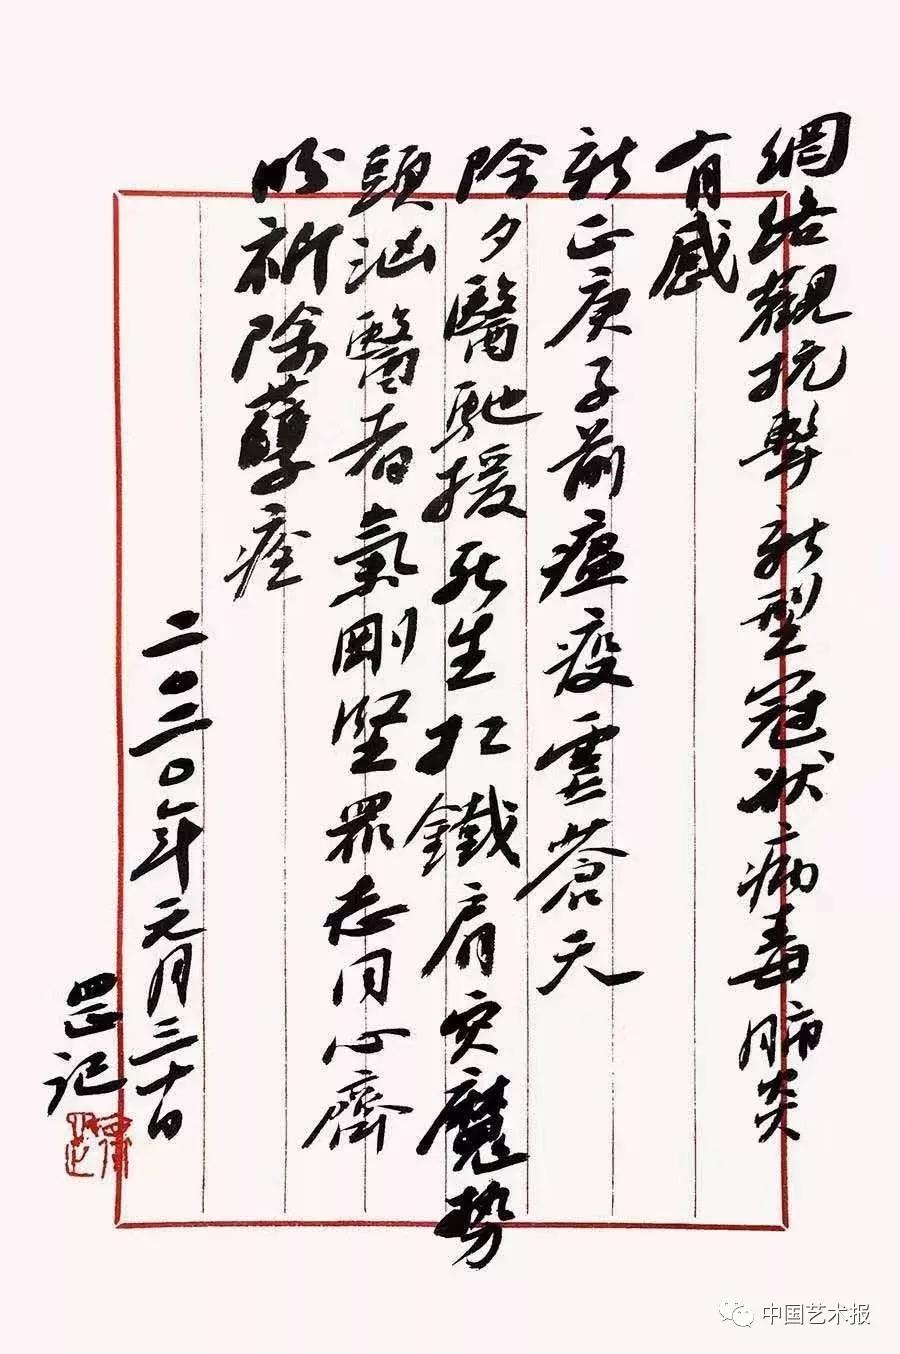 網絡觀抗擊新型冠狀病毒肺炎
有感
新正庚子前瘟疫雲蒼天
除夕醫馳援死生扛鐵肩灾魔勢
頭汹醫者氣剛堅眾志同心齊
盼祈除孽痊
二〇二〇年元月三十日
罡记
中国艺术报